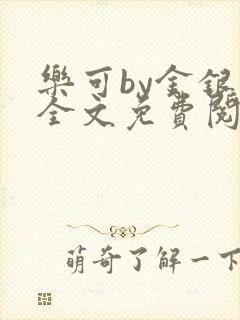 樂可by金銀
全文免費閱
萌奇了解一下